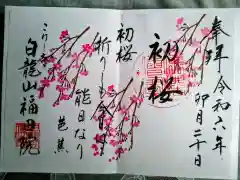 奉拝 令和六年
卯月二十日
初桜
初桜
折りしも今日は
能日なり
芭蕉
白龍山福
院